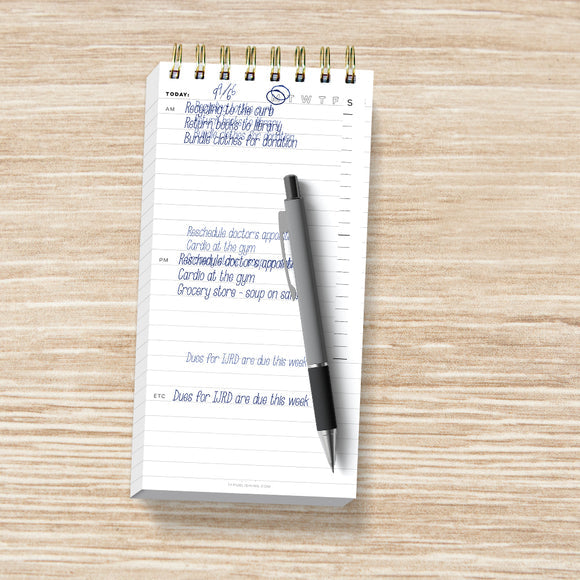 TODAY: T W T F S
AM Recycling to the curb
Return books to library
Bundle clothes for donation
Reschedule doctor's appoint
Cardio at the gym
PM Reschedule doctor's appoint
Cardio at the gym
Grocery store - soup on sal
Dues for IJRD are due this week
ETC Dues for IJRD are due this week